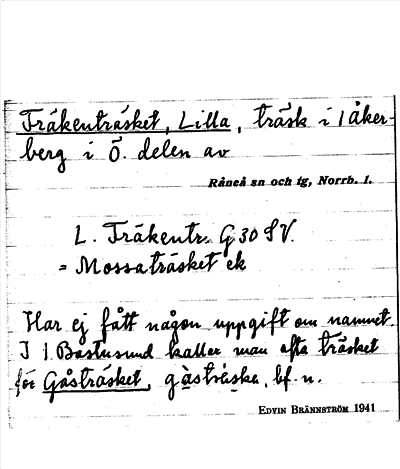 Fräkenträsket, Lilla, träsk i 1 Åker-
berg i Ö. delen av
Råneå sn och tg, Norrb. l.
L. Fräkentr. G 30 SV.
= Mossaträsket ek
Har ej fått någon uppgift om namnet.
I 1 Bastusund kallar man ofta träsket
för Gåsträsket, gåsträske, bf. n.
EDVIN BRÄNNSTRÖM 1941